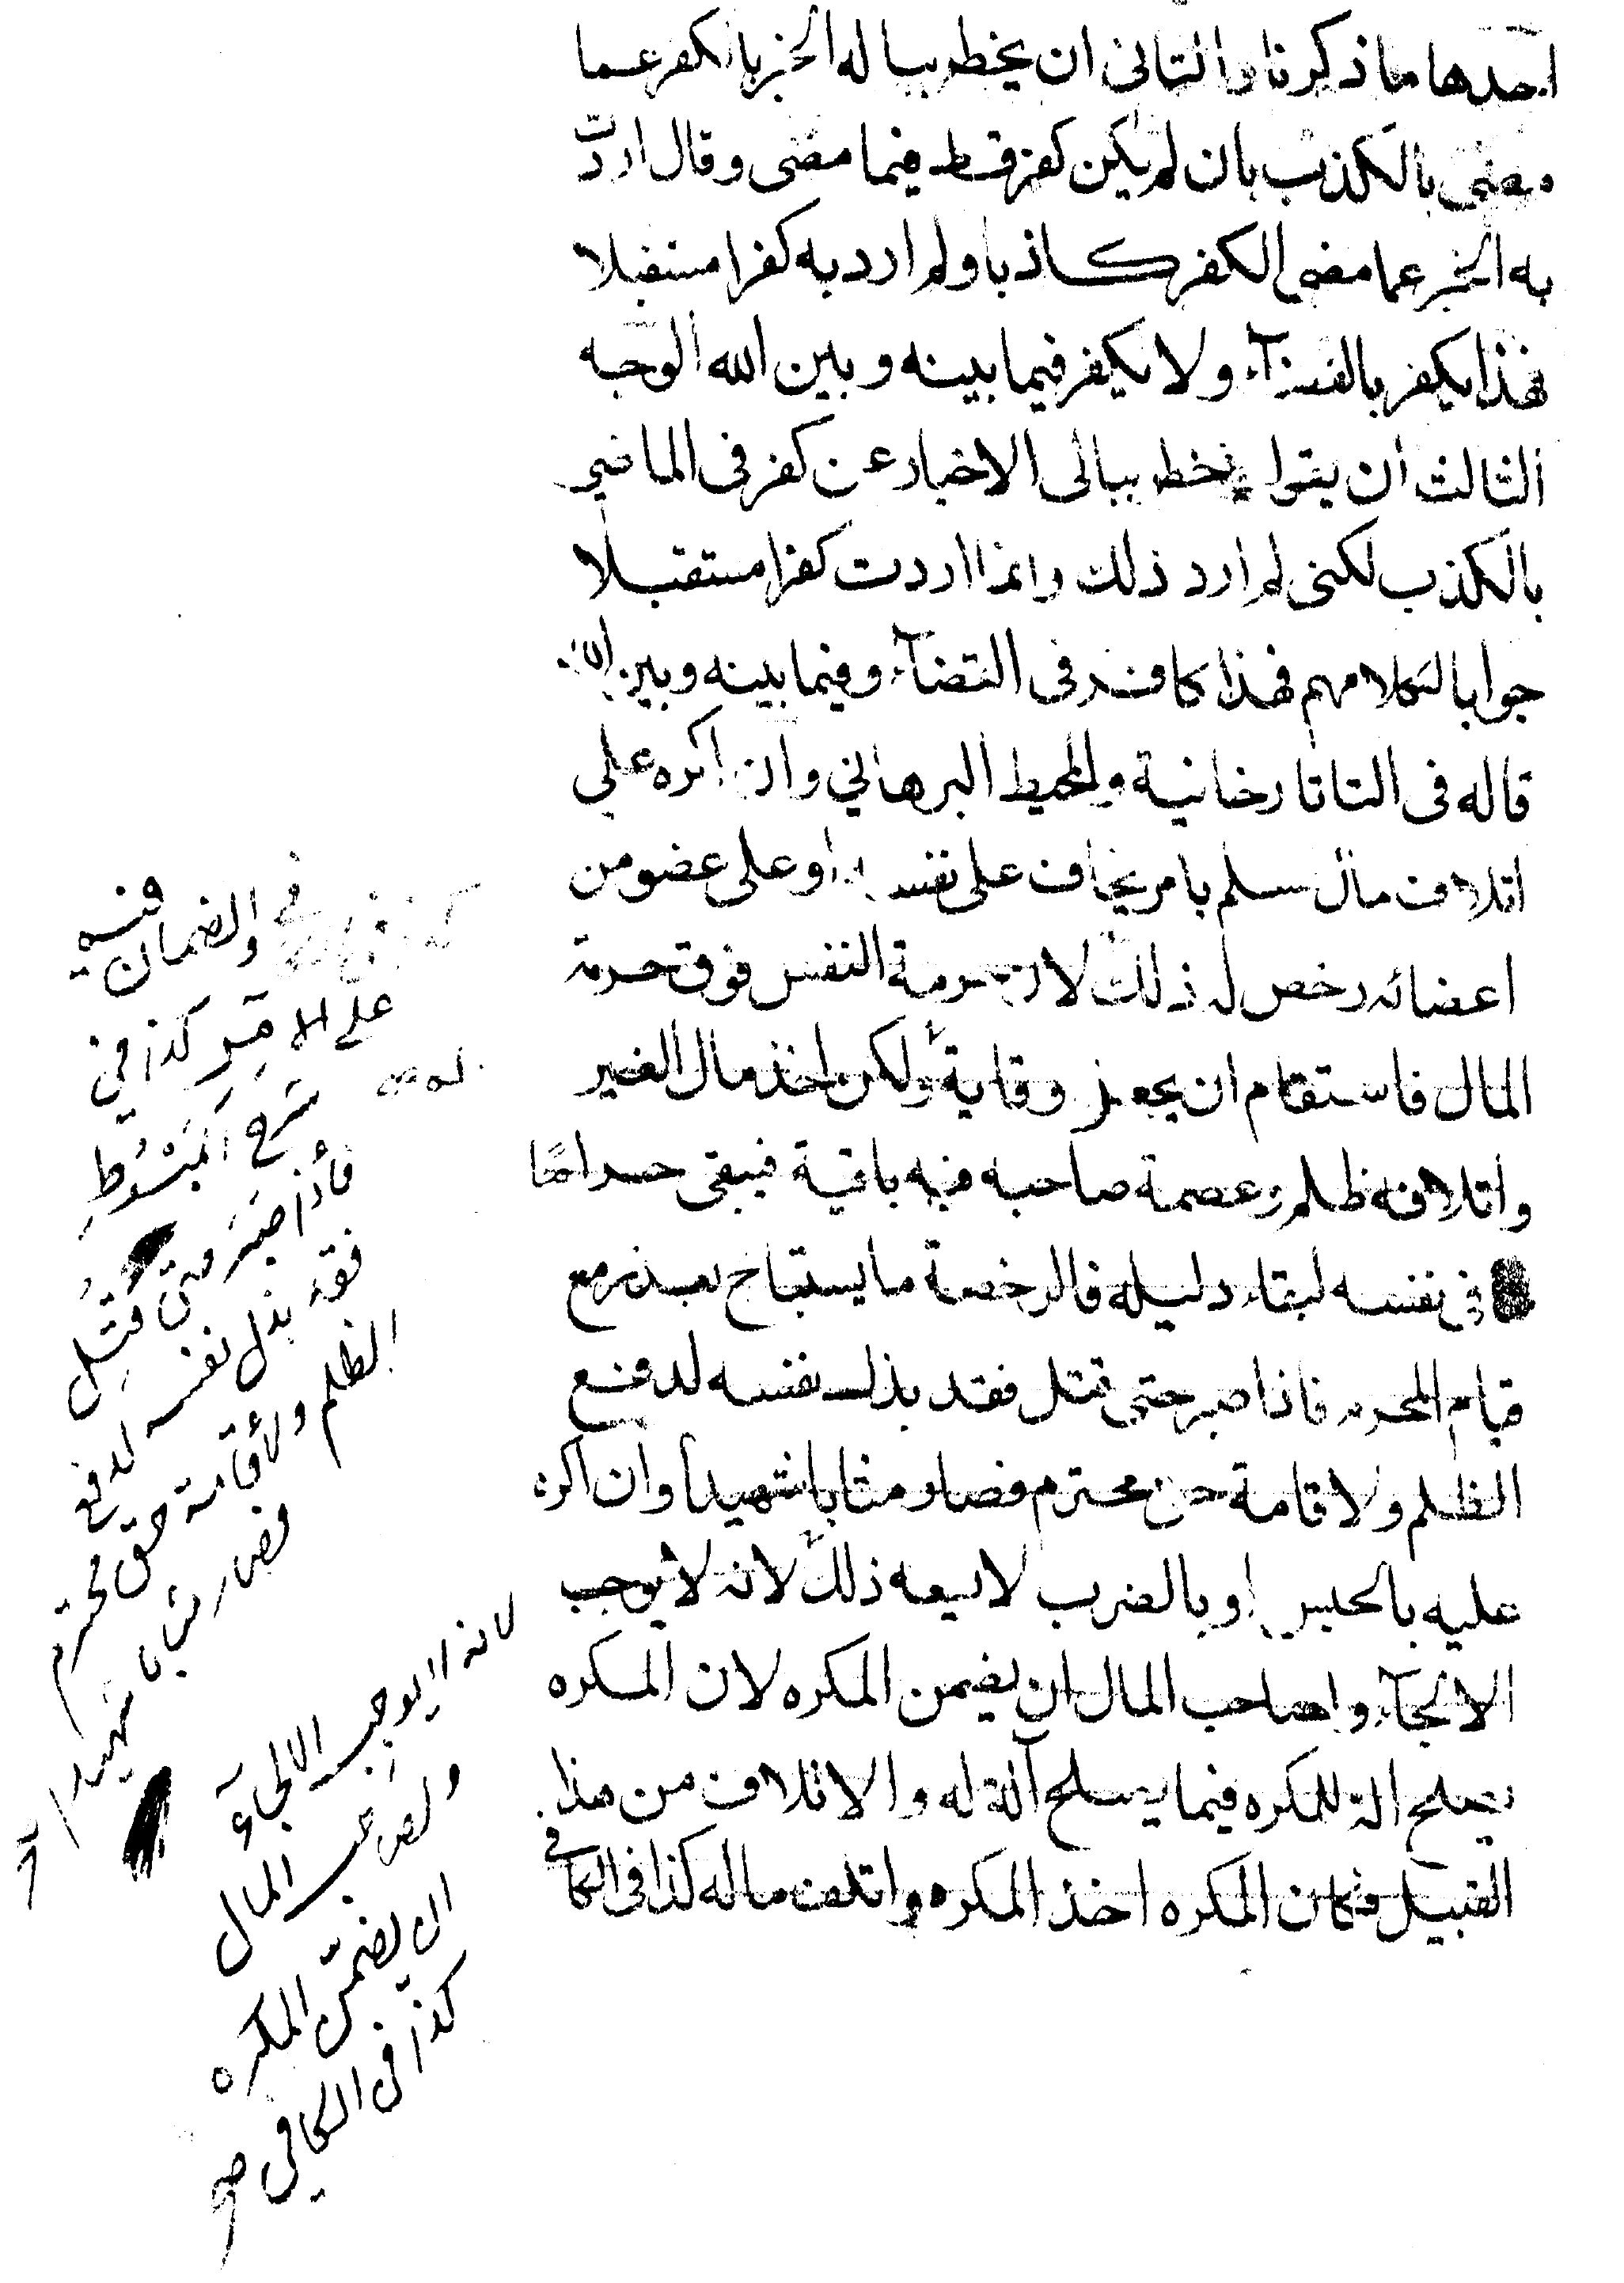 احدها ما ذكرنا والثانى ان يخطر بباله الخبر بالكفر عما
مضى بالكذب بان لم يكن كفر قط فيما مضى وقال اردت
به الخبر عما مضى الكفر كاذبا ولم ارد به كفرا مستقبلا
فهذا يكفر بالقضآء ولا يكفر فيما بينه وبين الله الوجه
الثالث ان يقول خطر ببالى الاخبار عن كفر فى الماضى
بالكذب لكنى لم ارد ذلك وانما اردت كفرا مستقبلا
جوابا لكلامهم فهذا كافر فى القضآء وفيما بينه وبين الله
قاله فى التاتارخانية والمحيط البرهاني وان اكره على
اتلاف مال مسلم بامر يخاف على نفسه او على عضو من
اعضائه رخص له ذلك لان حرمة النفس فوق حرمة
المال فاستقام ان يجعل وقاية ولكن اخذ مال الغير
واتلافه ظلم وعصمة صاحبه فيه باقية فيبقى حراما
فى نفسه لبقاء دليله فالرخصة ما يستباح بعذر مع
قيام المحرم فاذا صبر حتى قتل فقد بذل نفسه لدفع
الظلم ولاقامة حق محترم فصار مثابا شهيدا وان اكره
عليه بالحبس او بالضرب لا يسعه ذلك لانه لا يوجب
الالجآء ولصاحب المال ان يضمن المكره لان المكره
يصلح الة للمكره فيما يصلح آلة له والاتلاف من هذا
القبيل فكان المكره اخذ المكره واتلف ماله كذا فى الكافى
والضمان فيه
على الامر كذا في
شرح المبسوط
فأذا صبر حتى قُتِل
فقد بذل نفسه لدفع
الظلم ولأقامة حق محترم
فصار مثابا شهيدا
لانه لا يوجب الالجآء
ولصاحب المال
ان يضمّن المكره
كذا فى الكافي صح